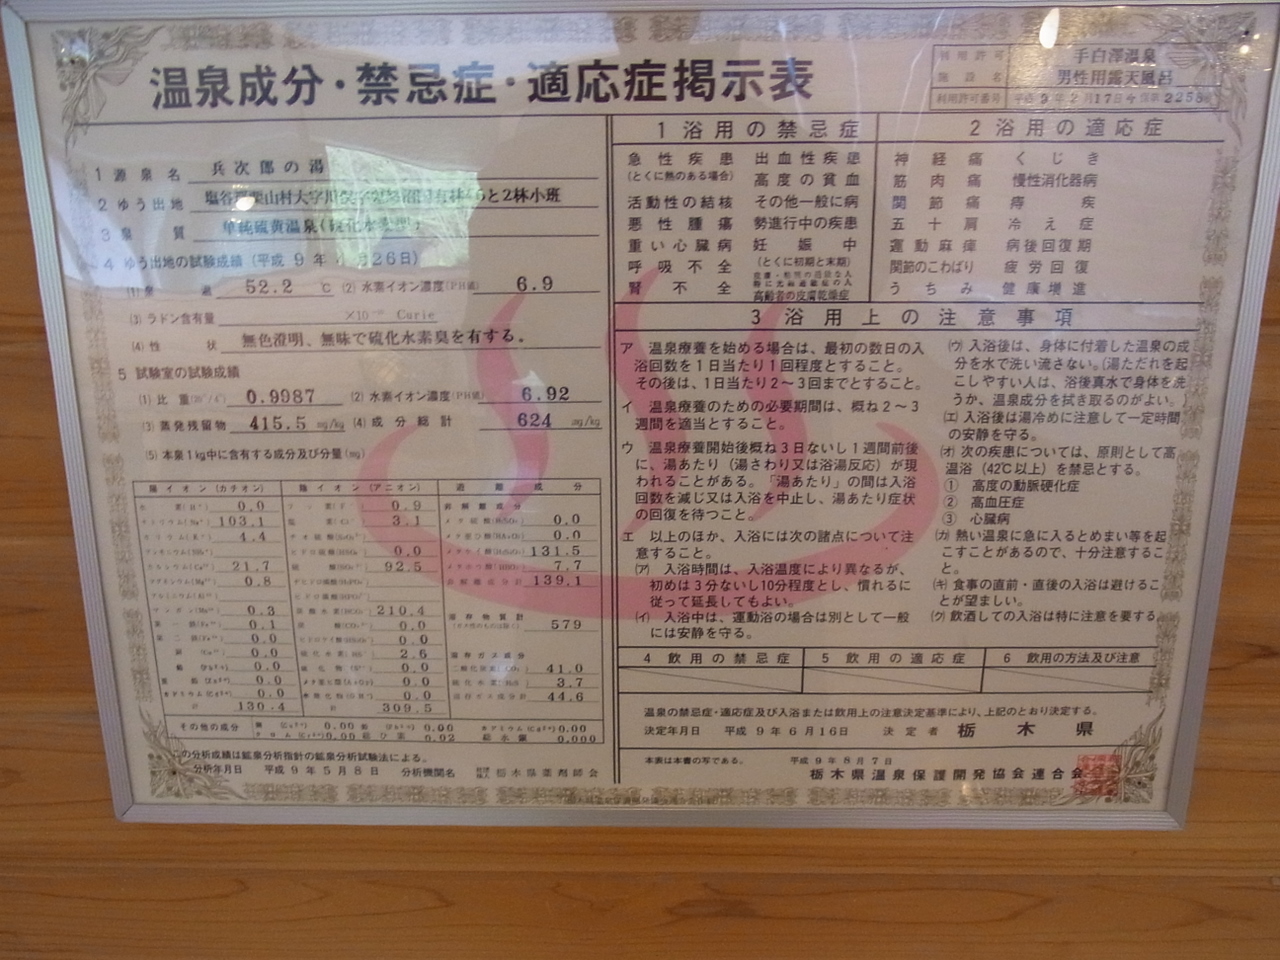 温泉成分・禁忌症・適応症掲示表
利用許可
施設名
手白澤温泉
男性用露天風呂
利用許可番号
平成9年2月17日
2258
1 源泉名 兵次郎の湯
2 ゆう出地 塩谷郡栗山村大字川俣 と2林小班
3 泉質 単純硫黄温泉(硫化水素型)
4 ゆう出地の試験成績(平成9年 月26日)
(1) 泉温 52.2 ℃ (2) 水素イオン濃度(PH値) 6.9
(3) ラドン含有量 Curie
(4) 性状 無色澄明、無味で硫化水素臭を有する。
5 試験室の試験成績
(1) 比重 0.9987 (2) 水素イオン濃度(PH値) 6.92
(3) 蒸発残留物 415.5 mg/kg (4) 成分総計 624 mg/kg
(5) 本泉1kg中に含有する成分及び分量(mg)
陽イオン(カチオン) 陰イオン(アニオン) 遊離成分
0.0 0.9 非解離成分
103.1 3.1 0.0
4.4 0.0
0.0 131.5
21.7 92.5 7.7
0.8 139.1
0.3 210.4
0.1 0.0 579
0.0 0.0
0.0 2.6
0.0 0.0 41.0
0.0 0.0 3.7
0.0 0.0 44.6
計 130.4 計 309.5
その他の成分 0.00 0.00 0.00
0.00 0.02 0.000
この分析成績は鉱泉分析指針の鉱泉分析試験法による。
分析年月日 平成9年5月8日 分析機関名 栃木県薬剤師会
1 浴用の禁忌症
急性疾患 出血性疾患
(とくに熱のある場合) 高度の貧血
活動性の結核 その他一般に病
悪性腫瘍 勢進行中の疾患
重い心臓病 妊娠中
呼吸不全 (とくに初期と末期)
腎不全
高齢者の皮膚乾燥症
2 浴用の適応症
神経痛 くじき
筋肉痛 慢性消化器病
関節痛 痔疾
五十肩 冷え症
運動麻痺 病後回復期
関節のこわばり 疲労回復
うちみ 健康増進
3 浴用上の注意事項
ア 温泉療養を始める場合は、最初の数日の入
浴回数を1日当たり1回程度とすること。
その後は、1日当たり2〜3回までとすること。
イ 温泉療養のための必要期間は、概ね2〜3
週間を適当とすること。
ウ 温泉療養開始後概ね3日ないし1週間前後
に、湯あたり(湯さわり又は浴湯反応)が現
われることがある。「湯あたり」の間は入浴
回数を減じ又は入浴を中止し、湯あたり症状
の回復を待つこと。
エ 以上のほか、入浴には次の諸点について注
意すること。
(ア) 入浴時間は、入浴温度により異なるが、
初めは3分ないし10分程度とし、慣れるに
従って延長してもよい。
(イ) 入浴中は、運動浴の場合は別として一般
には安静を守る。
(ウ) 入浴後は、身体に付着した温泉の成
分を水で洗い流さない。(湯ただれを起
こしやすい人は、浴後真水で身体を洗
うか、温泉成分を拭き取るのがよい。)
(エ) 入浴後は湯冷めに注意して一定時間
の安静を守る。
(オ) 次の疾患については、原則として高
温浴(42℃以上)を禁忌とする。
① 高度の動脈硬化症
② 高血圧症
③ 心臓病
(カ) 熱い温泉に急に入るとめまい等を起
こすことがあるので、十分注意するこ
と。
(キ) 食事の直前・直後の入浴は避けるこ
とが望ましい。
(ク) 飲酒しての入浴は特に注意を要する。
4 飲用の禁忌症 5 飲用の適応症 6 飲用の方法及び注意
温泉の禁忌症・適応症及び入浴または飲用上の注意決定基準により、上記のとおり決定する。
決定年月日 平成9年6月16日 決定者 栃木県
本表は本書の写である。 平成9年8月7日
栃木県温泉保護開発協会連合会